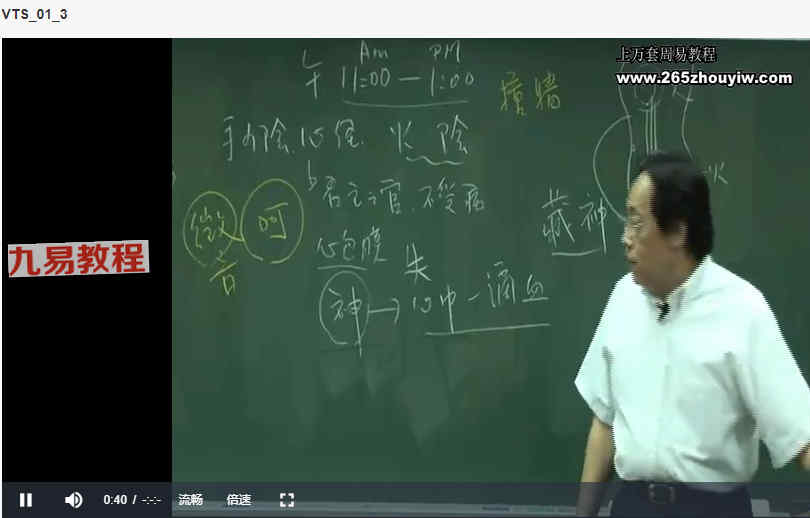 VTS_01_3
上万套周易教程
www.265zhouyiw.com
Am PM
午 11:00 — 1:00
手少陰心經 火 陰
君主之官.不受病
徵 呵
音
藏神
心包膜
失
神→心中一滴血
九易教程
0:40 / -:-:-
流畅
倍速